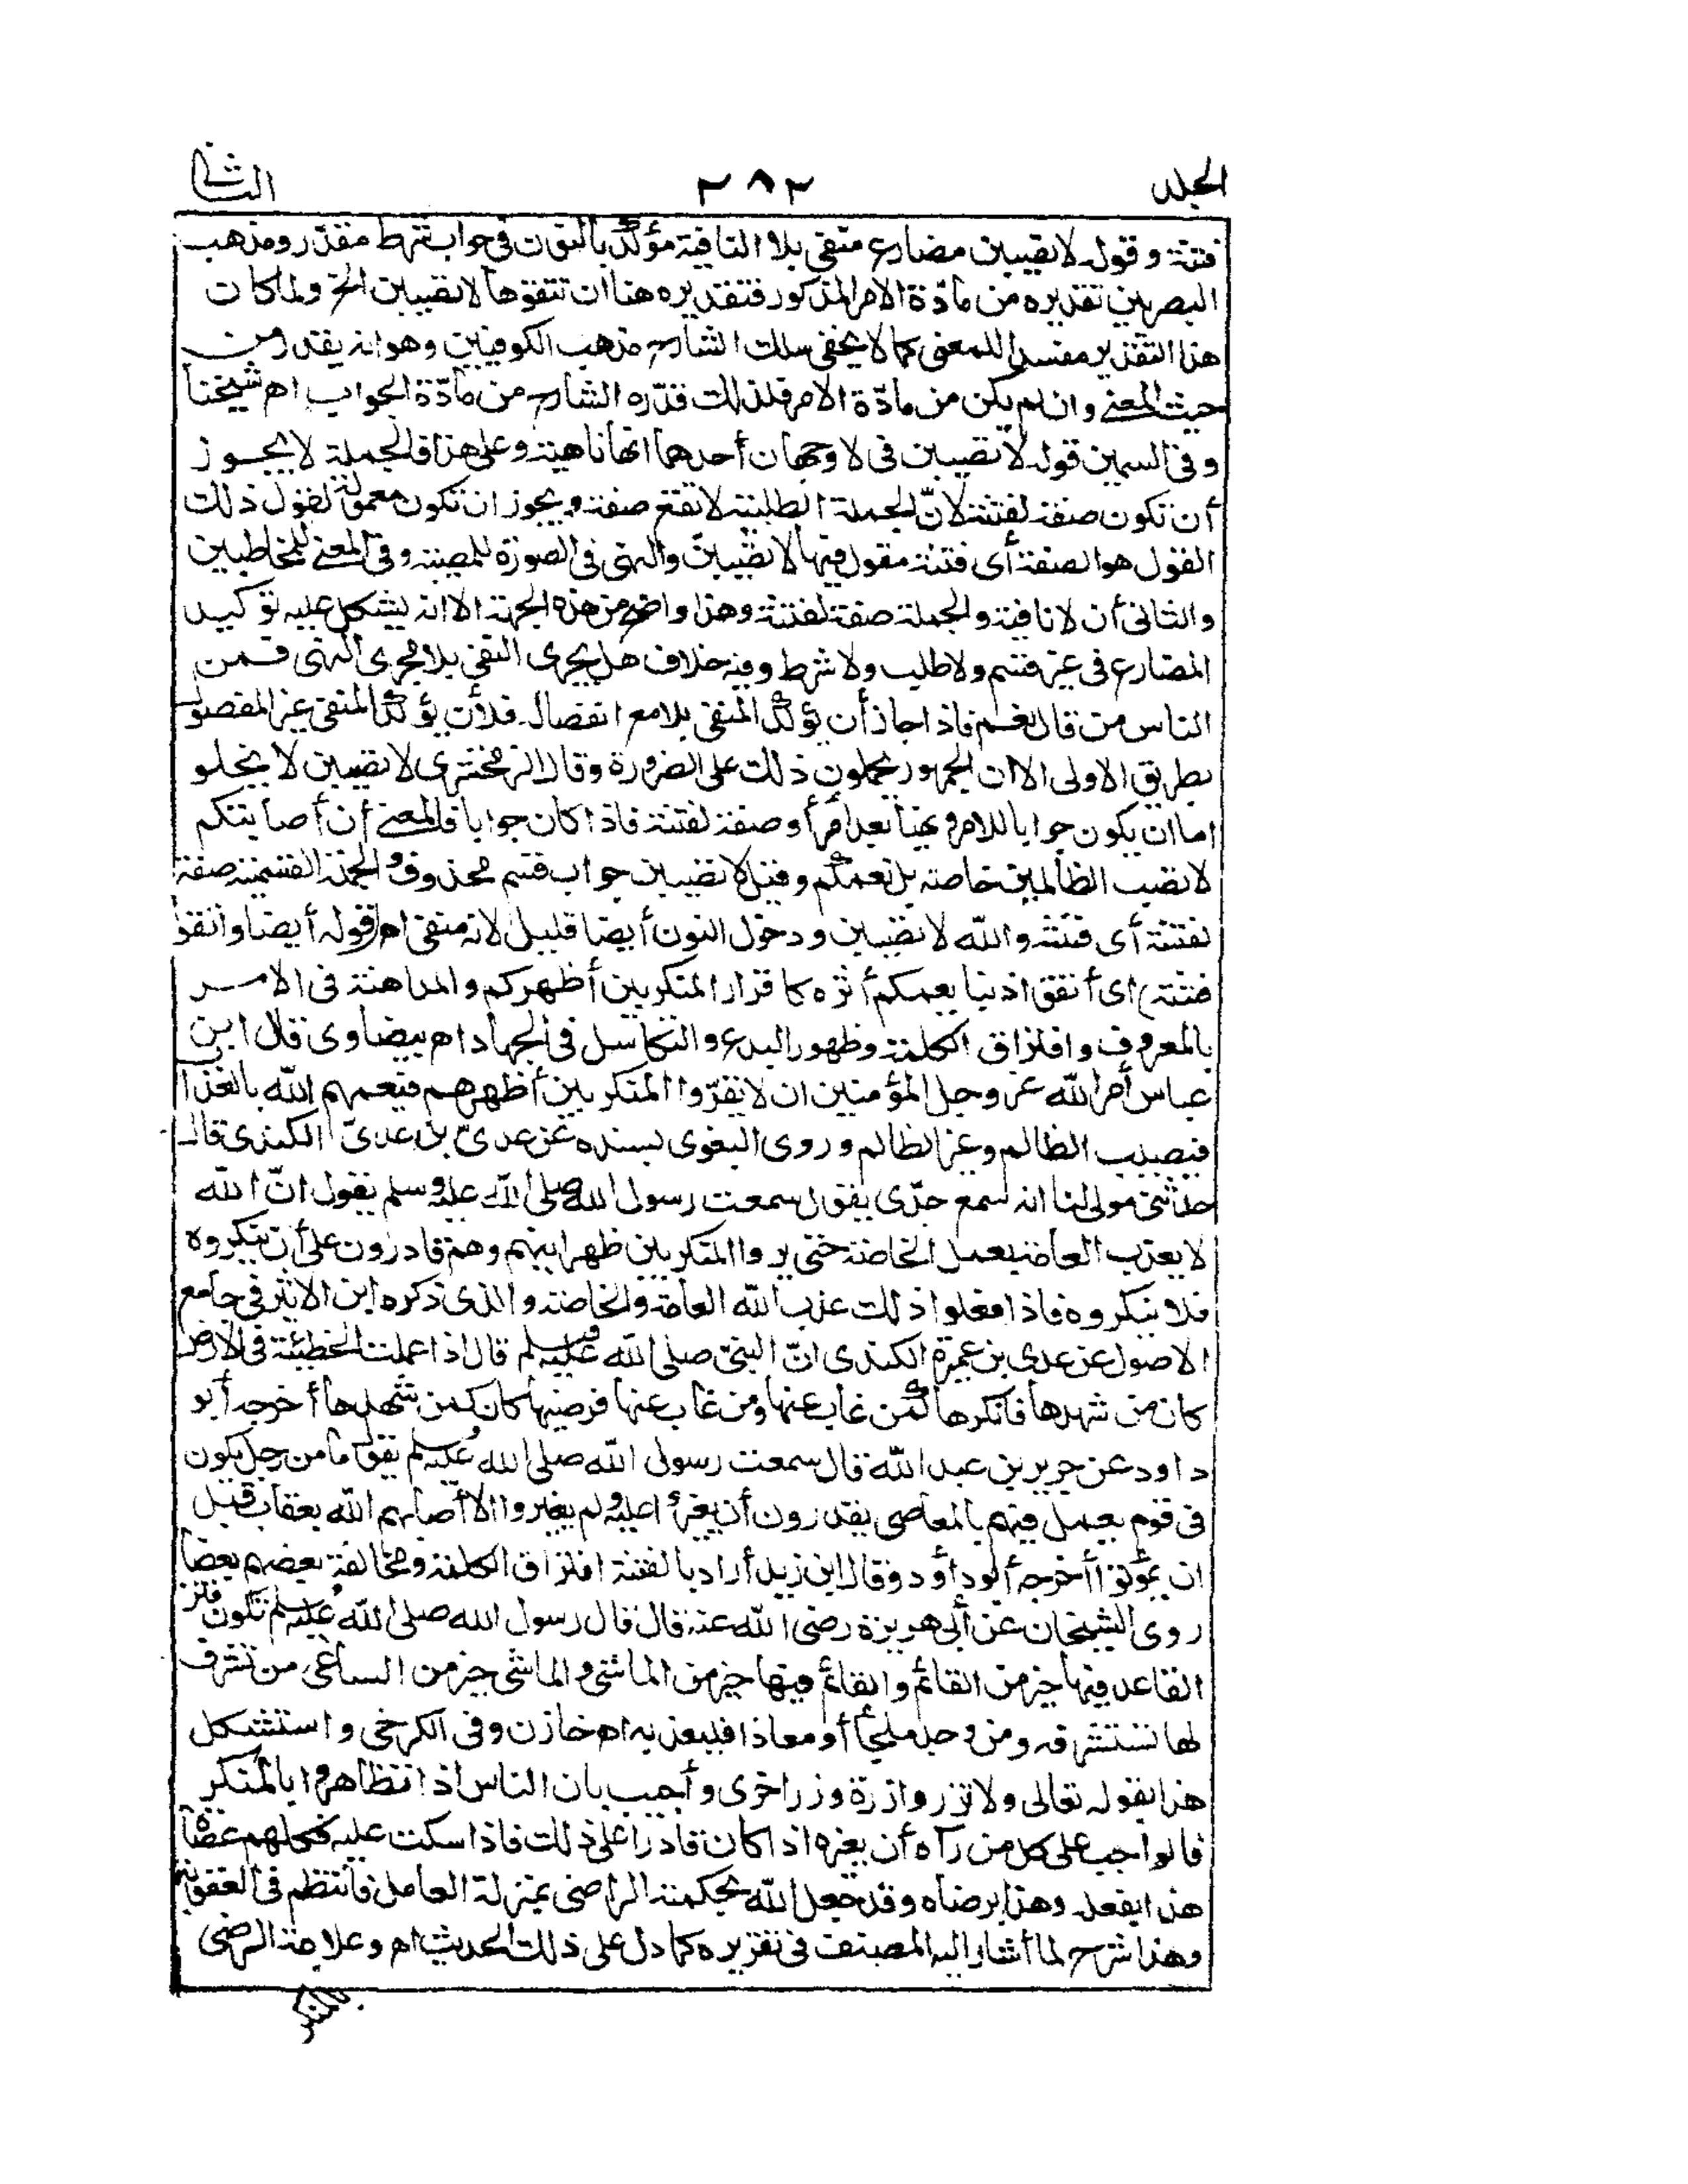 الجلد ٢٨٢ الثانى
فتنة وقوله لا تصيبن مضارع منفى بلا النافية مؤكد بالنون فى جواب شرط مقدر ومذهب
البصريين تقديره من مادّة الامر المذكور فتقديره هنا ان تتقوها لا تصيبن الخ ولما كان
هذا التقدير مفسدا للمعنى كما لا يخفى سلك الشارح مذهب الكوفيين وهو انه يقدر من
حيث المعنى وان لم يكن من مادّة الامر فلذلك قدّره الشارح من مادّة الجواب اه شيخنا
وفى السمين قوله لا تصيبن فى لا وجهان أحدهما انها ناهية وعلى هذا فالجملة لا يجوز
أن تكون صفة لفتنة لانّ الجملة الطلبية لا تقع صفة ويجوز ان تكون معمولة لقول ذلك
القول هو الصفة أى فتنة مقول فيها لا تصيبنّ والنهى فى الصورة للمصيبة وفى المعنى للمخاطبين
والثانى أن لا نافية والجملة صفة لفتنة وهذا واضح من هذه الجهة الا انه يشكل عليه توكيد
المضارع فى غير قسم ولا طلب ولا شرط وفيه خلاف هل يجرى النفى بلا مجرى النهى فمن
الناس من قال نعم فاذا جاز أن يؤكد المنفى بلا مع انفصال فلأن يؤكد المنفى غير المفصول
بطريق الاولى الا ان الجمهور يحملون ذلك على الضرورة وقال الزمخشرى لا تصيبن لا يخلو
اما ان يكون جوابا للامر ونهيا بعد أمر أو صفة لفتنة فاذا كان جوابا فالمعنى أن أصابتكم
لا تصب الظالمين خاصة بل تعمكم وقيل لا تصيبن جواب قسم محذوف والجملة القسمية صفة
لفتنة أى فتنة والله لا تصيبن ودخول النون أيضا قليل لانه منفى اه (قوله أيضا واتقوا
فتنة) اى أتقوا ذنبا يعمكم أثره كاقرار المنكر بين أظهركم والمداهنة فى الامر
بالمعروف وافتراق الكلمة وظهور البدع والتكاسل فى الجهاد اه بيضاوى قال ابن
عباس أمر الله عز وجل المؤمنين ان لا يقرّوا المنكر بين أظهرهم فيعمهم الله بالعذاب
فيصيب الظالم وغير الظالم وروى البغوى بسنده عن عدىّ بن عدىّ الكندى قال
حدثنى مولى لنا انه سمع جدّى يقول سمعت رسول الله صلى الله عليه وسلم يقول انّ الله
لا يعذب العامة بعمل الخاصة حتى يروا المنكر بين ظهرانيهم وهم قادرون على أن ينكروه
فلا ينكروه فاذا فعلوا ذلك عذب الله العامة والخاصة والذى ذكره ابن الاثير فى جامع
الاصول عن عدى بن عميرة الكندى انّ النبىّ صلى الله عليه وسلم قال اذا عملت الخطيئة فى الارض
كان من شهدها فأنكرها كمن غاب عنها ومن غاب عنها فرضيها كان كمن شهدها أخرجه أبو
داود عن جرير بن عبد الله قال سمعت رسول الله صلى الله عليه وسلم يقول ما من رجل يكون
فى قوم يعمل فيهم بالمعاصى يقدرون أن يغيروا عليه ولم يغيروا الا أصابهم الله بعقاب قبل
ان يموتوا أخرجه أبو داود وقال ابن زيد أراد بالفتنة افتراق الكلمة ومخالفة بعضهم بعضا
روى الشيخان عن أبى هريرة رضى الله عنه قال قال رسول الله صلى الله عليه وسلم تكون فتن
القاعد فيها خير من القائم والقائم فيها خير من الماشى والماشى خير من الساعى من تشرف
لها تستشرفه ومن وجد ملجأ أو معاذا فليعذ به اه خازن وفى الكرخى واستشكل
هذا بقوله تعالى ولا تزر وازرة وزر اخرى وأجيب بان الناس اذا تظاهروا بالمنكر
فالواجب على كل من رآه أن يغيره اذا كان قادرا على ذلك فاذا سكت عليه فكلهم عصاة
هذا بفعله وهذا برضاه وقد جعل الله بحكمته الراضى بمنزلة العامل فأنتظم فى العقوبة
وهذا شرح لما أشار اليه المصنف فى تقريره كما دل على ذلك الحديث اه وعلامة الرضى